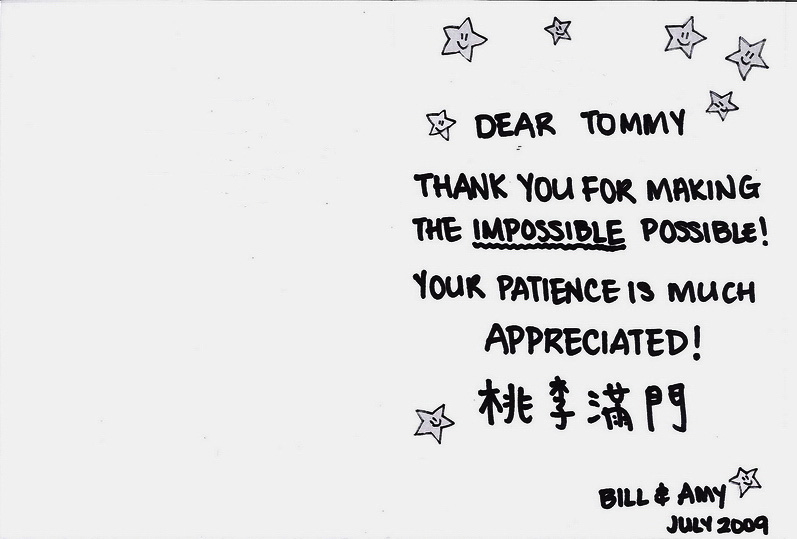 DEAR TOMMY
THANK YOU FOR MAKING
THE IMPOSSIBLE POSSIBLE!
YOUR PATIENCE IS MUCH
APPRECIATED!
桃李滿門
BILL & AMY
JULY 2009